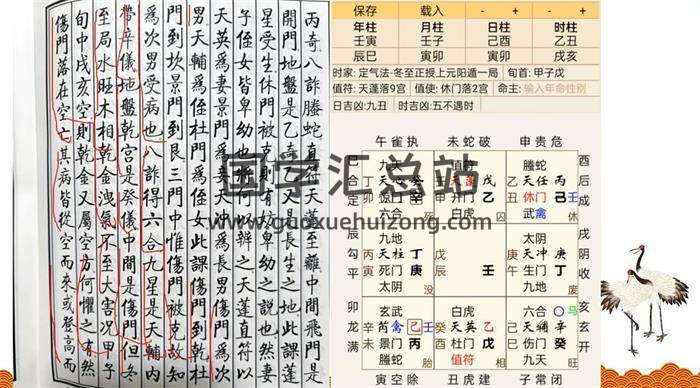 丙奇八詐螣蛇直符天蓬至離中間飛門是
開門地盤是乙奇乙又是長生之地此課蓬
星受生休門被則有妨卑幼之説也然妻
子侄女皆卑幼也將何以辨之天蓬直符以
天英為妻景門為妻天沖為長男傷門為長
男天輔為侄杜門為侄女此課傷門到乾杜
門到坎景門到艮三門中惟傷門被克故知
為次男受病也八詐得六合九星是天輔内
帶辛儀地盤乾宮是癸儀中間是傷門但冬
至局水旺木相乾金洩氣不至大害况甲子
旬中戌亥空則乾金又屬空方何懼之有然
傷門落在空亡其病皆從空而來或登高而
保存 载入 - + - +
年柱 月柱 日柱 时柱
壬寅 壬子 己酉 乙丑
辰巳 寅卯 寅卯 戌亥
时家: 定气法-冬至正授上元阳遁一局 旬首: 甲子戊
值符: 天蓬落9宫 值使: 休门落2宫 命主: 输入年命性别
日吉凶:九丑 时吉凶:五不遇时
午雀执 未蛇破 申贵危
九天 值符 螣蛇
丁 天心 辛 天蓬 戊 乙 天任 丙
丙 惊门 辛 开门 乙 丑 休门 己 壬
六合 相 白虎 囚 武禽
巳合定
酉后成
九地 太阴
丙 天柱 丁 戊 天冲 庚
寅 死门 庚 壬 庚 生门 丁
太阴 没 九地 废
辰勾平
戌阴收
玄武 白虎 六合 马
辛 芮禽 己 壬 癸 天英 乙 己 天辅 辛
景门 丙 杜门 戊 伤门 癸
螣蛇 胎 值符 九天 旺
卯龙满
亥玄开
寅空除 丑虎建 子常闭
国学汇总站
www.guoxuehuizong.com